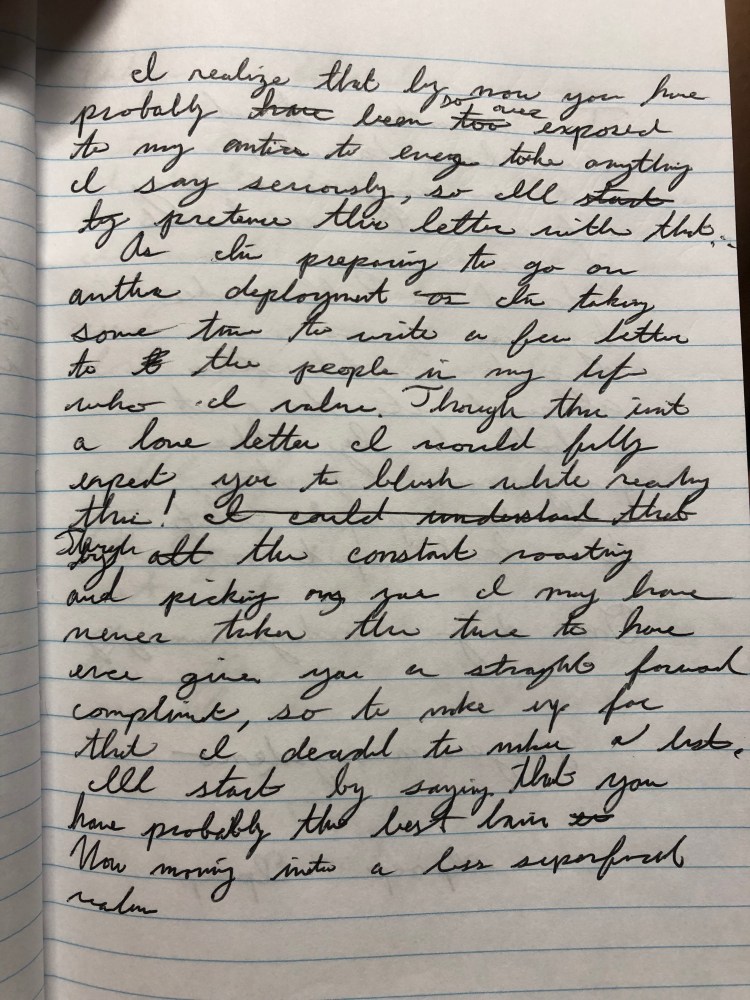 I realize that by now you have
probably have been too so over exposed
to my antics to every take anything
I say seriously, so Ill start
by pretence this letter with that...
As Im preparing to go on
anther deployment Im taking
some time to write a few letter
to the people in my life
who I value. Though this isnt
a love letter I would fully
expect you to blush while reading
this! I could understand that
Through all the constant roasting
and picking on you I may have
never taken the time to have
ever given you a straight forward
compliment, so to make up for
that I decided to make a list.
Ill start by saying that you
have probably the best hair
Now moving into a less superficial
realm